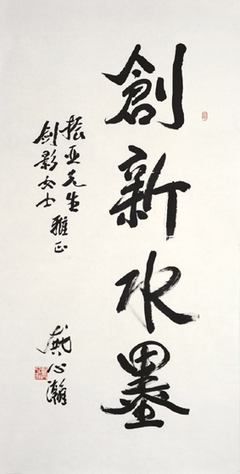 創新水墨
振亚先生
剑影女士 雅正
龚心瀚